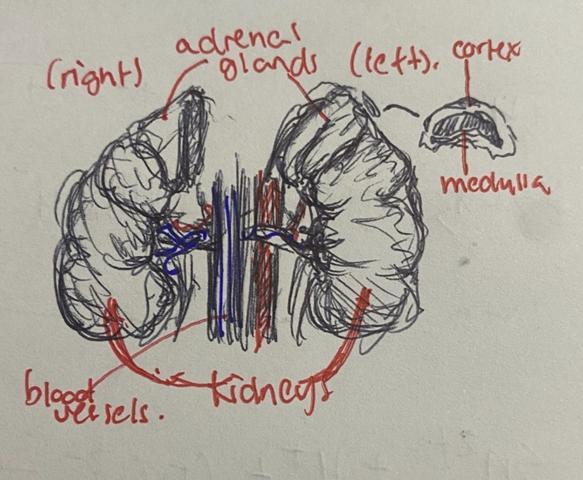 adrenal
glands
(right)
(left).
cortex
medulla
blood
vessels.
kidneys